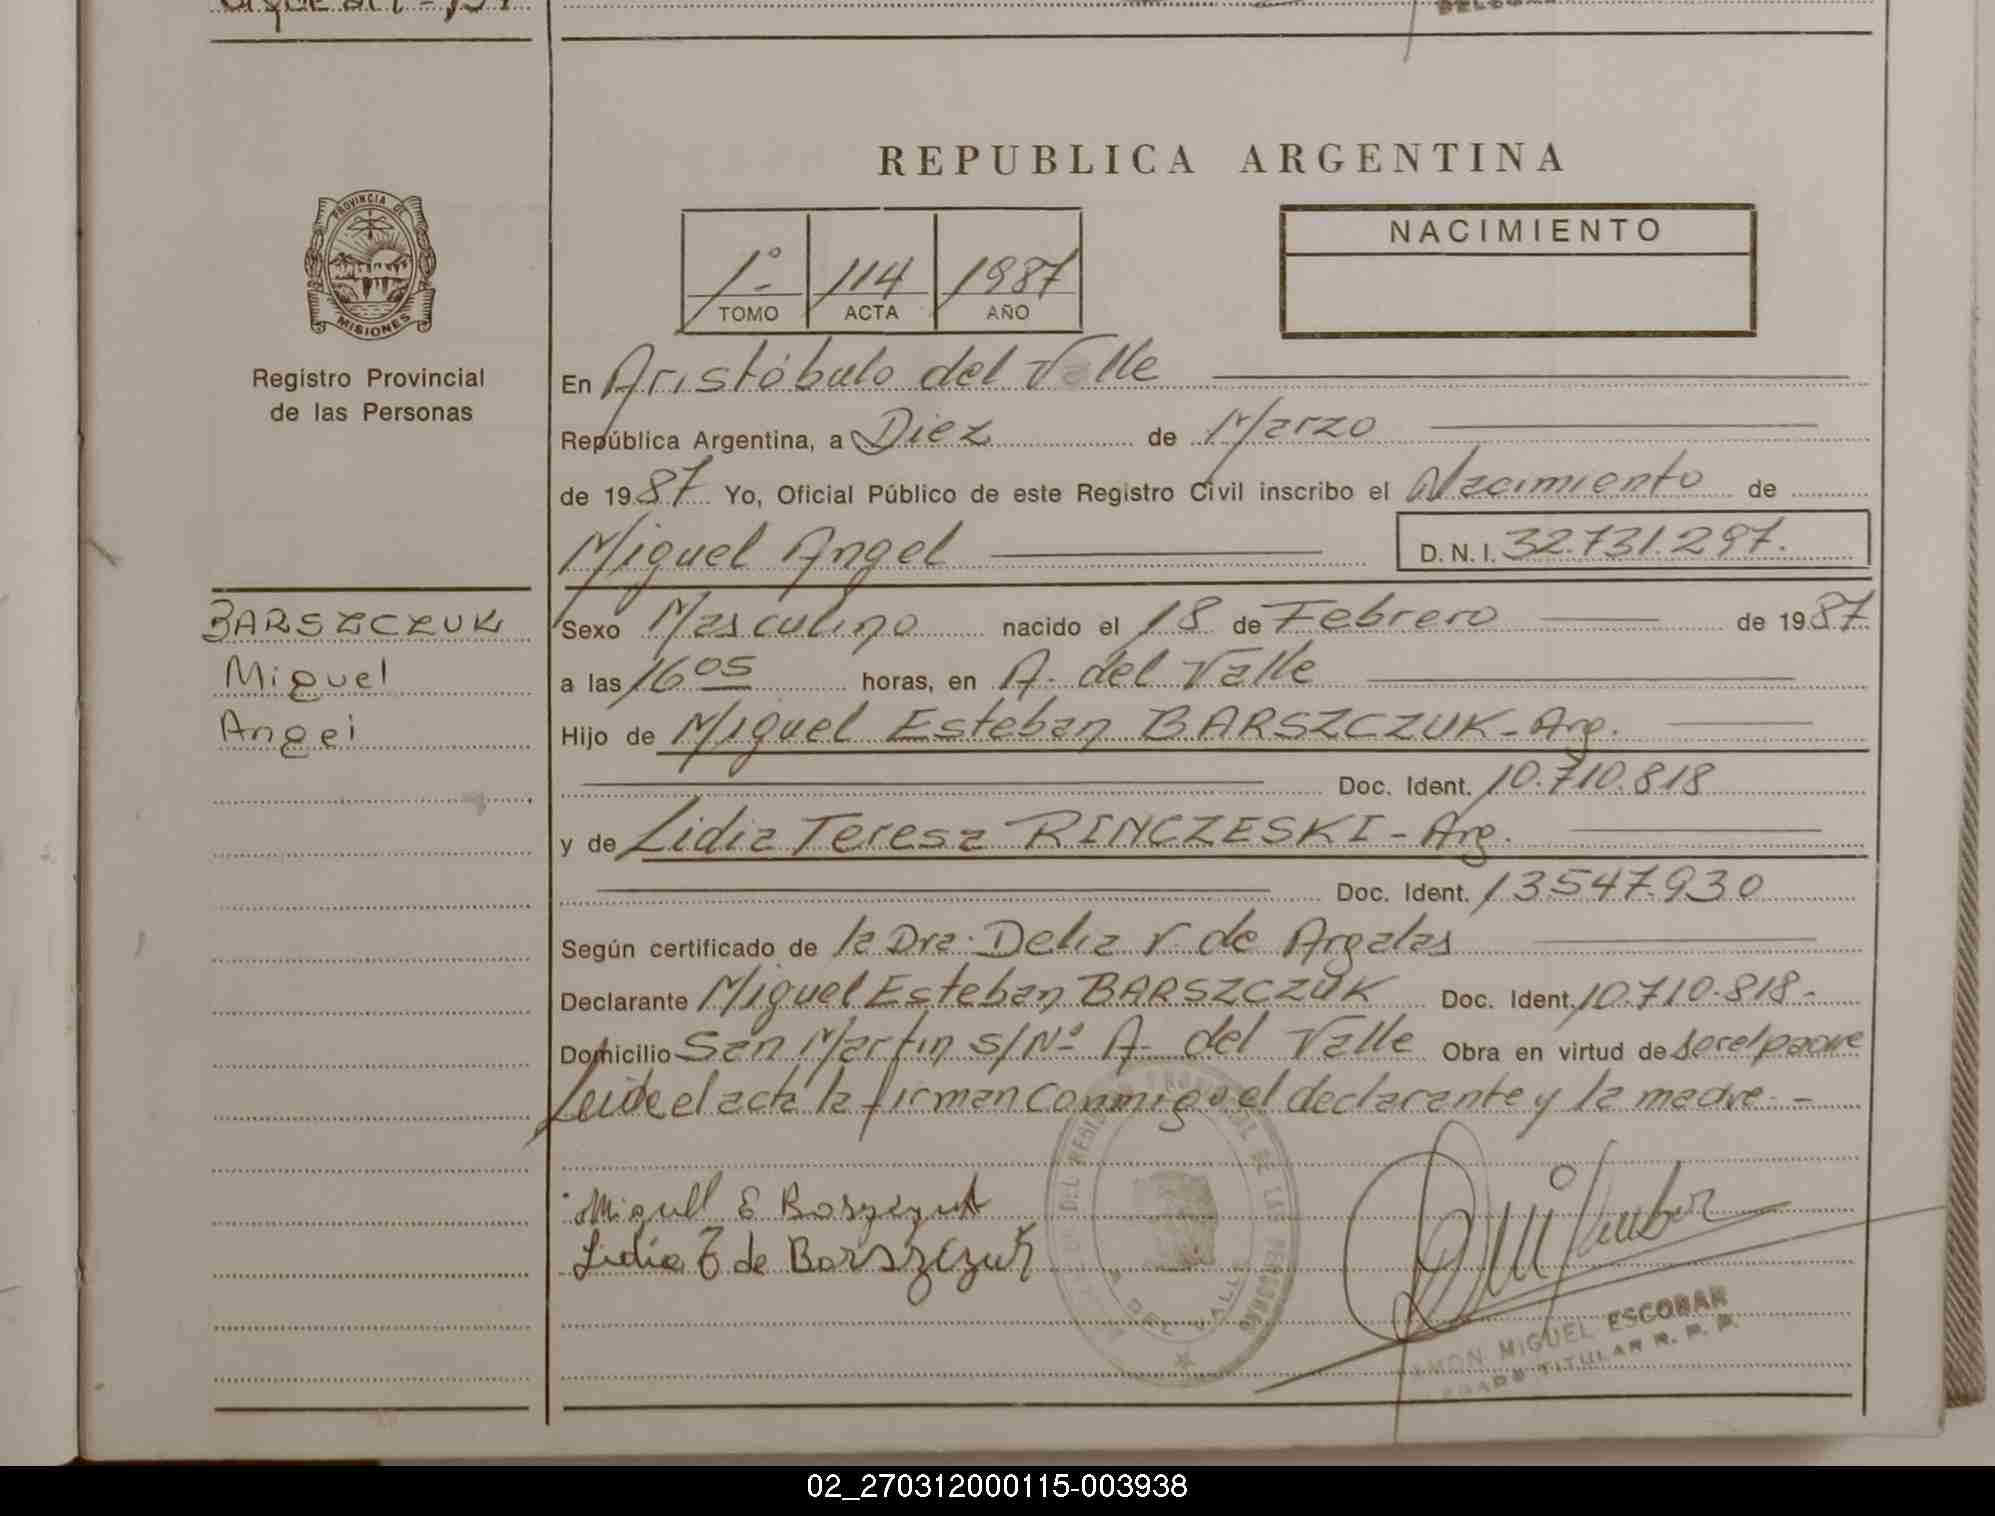 REPUBLICA ARGENTINA
PROVINCIA DE
MISIONES
Registro Provincial
de las Personas
1º 114 1987
TOMO ACTA AÑO
NACIMIENTO
En Aristóbulo del Valle
República Argentina, a Diez de Marzo
de 1987 Yo, Oficial Público de este Registro Civil inscribo el Nacimiento de
Miguel Angel D.N.I. 32.731.297.
BARSZCZUK
Miguel
Angel
Sexo Masculino nacido el 18 de Febrero de 1987
a las 16 05 horas, en A. del Valle
Hijo de Miguel Esteban BARSZCZUK - Arg.
Doc. Ident. 10.710.818
y de Lidia Teresa RINCZESKI - Arg.
Doc. Ident. 13547.930
Según certificado de la Dra. Delia V. de Argalas
Declarante Miguel Esteban BARSZCZUK Doc. Ident. 10.710.818-
Domicilio San Martin s/Nº A. del Valle Obra en virtud de ser el padre
Leida el acta la firman conmigo el declarante y la madre. -
Miguel E
Lidia T de Barszczuk
DEL REGISTRO PROVINCIAL DE LAS PERSONAS
A DEL VALLE
MIGUEL ESCOBAR
TITULAR R. P. P.
02_270312000115-003938